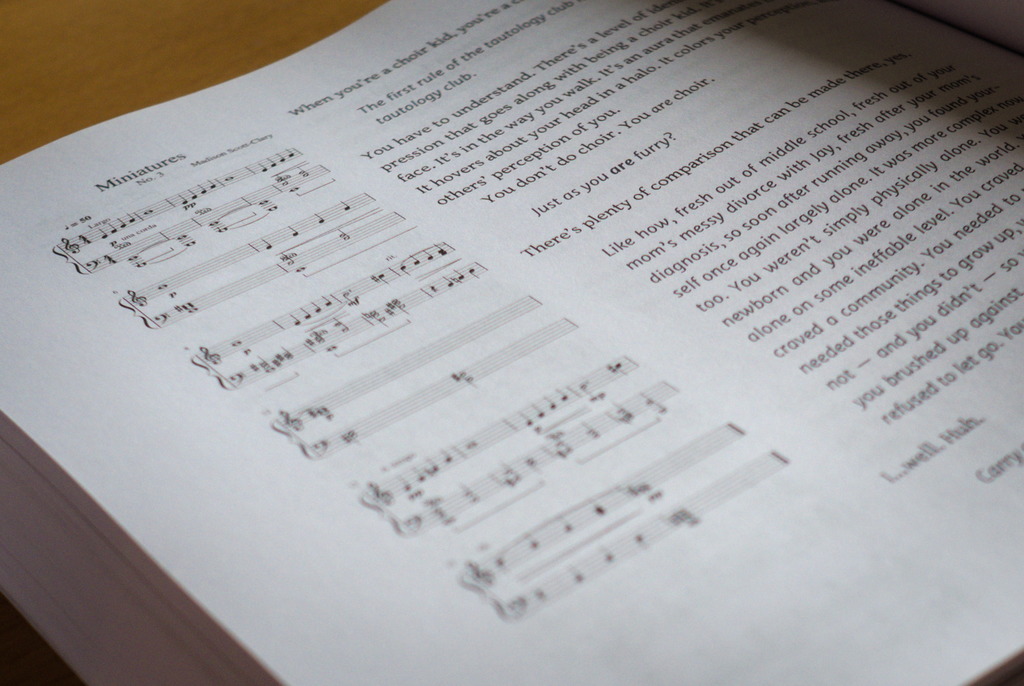 Miniatures
No. 3
Madison Scott-Clary
♩ = 50
Largo
When you're a choir kid, you're a
The first rule of the tautology club
tautology club.
You have to understand. There's a level of
pression that goes along with being a choir kid. It's
face, it's in the way you walk. It's an aura that emanates
It hovers about your head in a halo. it colors your perception,
others' perception of you.
You don't do choir. You are choir.
Just as you are furry?
There's plenty of comparison that can be made there, yes.
Like how, fresh out of middle school, fresh out of your
mom's messy divorce with Joy, fresh after your mom's
diagnosis, so soon after running away, you found your-
self once again largely alone. It was more complex now
too. You weren't simply physically alone. You
newborn and you were alone in the world.
alone on some ineffable level. You craved
craved a community. You needed to
needed those things to grow up,
not — and you didn't — so
you brushed up against
refused to let go. You
I...well. Huh.
Carry